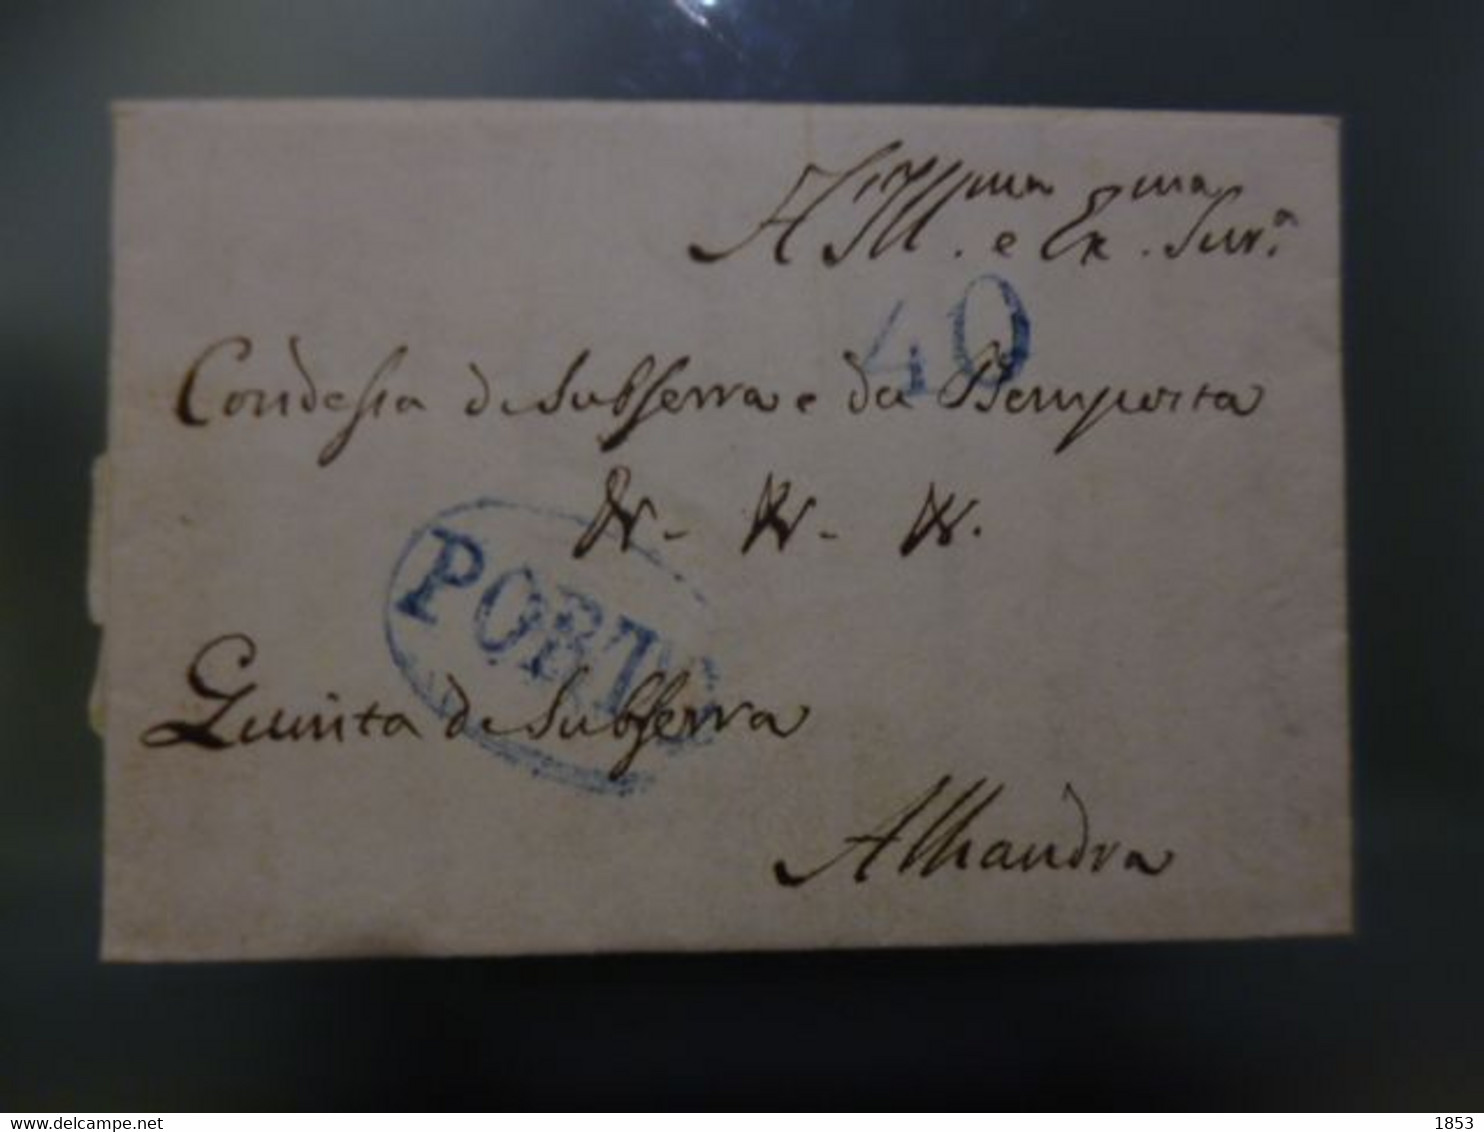 A Ill.ma e Ex.ma Snr.ª
40
Condessa de Subserra e da Bemposta
&. - &. - &.
PORTO
Quinta de Subserra
Alhandra
www.delcampe.net
1853